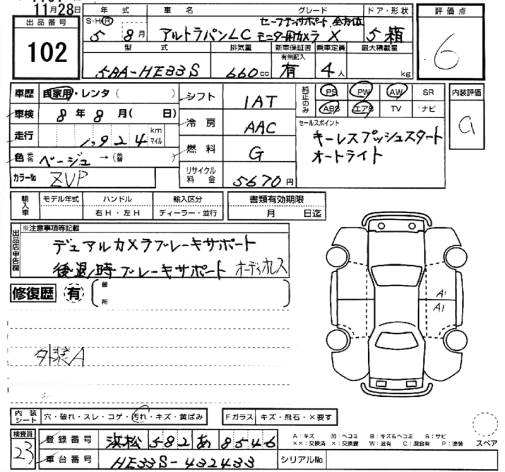 11月28日
出品番号 102
年式 車名 グレード ドア・形状 評価点
S・H・R 5年 8月 アルトラパンLC セーフティサポート 全方位モニター用カメラ X 5箱 6
型式 排気量 新車保証書 乗車定員 最大積載量
5AA-HE33S 660cc 有 4人 kg
車歴 自家用・レンタ( ) シフト 1AT 純正のみ PS PW AW SR 内装評価
車検 8年8月( 日) ABS エアB TV ナビ a
冷房 AAC セールスポイント
走行 1,924 km マイル キーレスプッシュスタート
燃料 G オートライト
色 ベージュ →(替 )
カラーNo. ZVP リサイクル料金 5670円
輸入車 モデル年式 ハンドル 輸入区分 書類有効期限
年 右H・左H ディーラー・並行 月 日迄
出品店申告欄 ※注意事項等記載
デュアルカメラブレーキサポート
後退時ブレーキサポート オーディオレス
修復歴 有 箇所
A1
A1
外装A
内装シート 穴・破れ・スレ・コゲ・汚れ・キズ・黄ばみ Fガラス キズ・飛石・×要す
スペア
検査員 23 登録番号 浜松 582 あ 8546
A:キズ U:ヘコミ B:キズ&ヘコミ S:サビ
××:交換済 X:交換要 W:波 C:腐食 P:塗装
車台番号 HE33S-432433 シリアルNo.